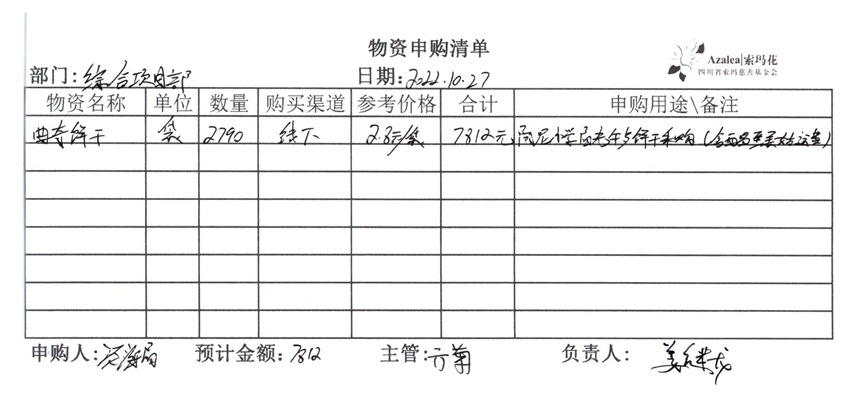 物资申购清单
Azalea|索玛花
四川省索玛慈善基金会
部门:综合项目部 日期:2022.10.27
物资名称 单位 数量 购买渠道 参考价格 合计 申购用途\备注
曲奇饼干 袋 2790 线下 2.8元/袋 7812元
申购人: 预计金额:7812 主管: 负责人: